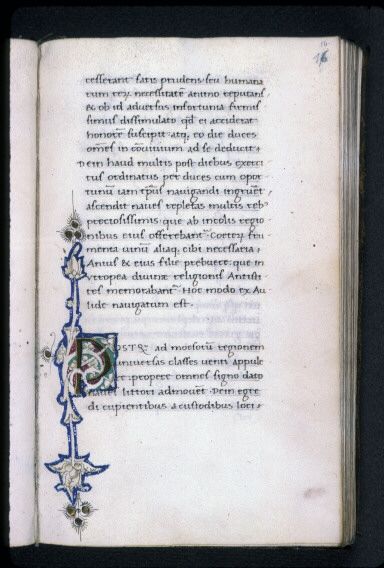 16
16
cesserant satis prudens seu humana
rum reꝝ necessitatē animo reputans
& ob id adversus infortunia firmis
simus dissimulato qđ ei acciderat
honore suscipit atq; eo die duces
omēs in cōvivium ad se deducit.
Dein haud multis post diebus exerci
tus ordinatus per duces cum opor
tunū iam tp̄us navigandi ingruēt,
ascendit naves repletas multis reb
preciosissimis. que ab incolis regio
nibus eius offerebant. Ceterū, fru
menta vinū aliaq; cibi necessaria,
Anius & eius filie prebuere. que in
utropea divine religionis Antisti
tes memorabant. Hoc modo ex Au
lide navigatum est.
POSTQ̃ ad moesorū regionem
universas classes venti appule
propere omnes signo dato
naves littori admovēt. Dein egre
di cupientibus a custodibus loci